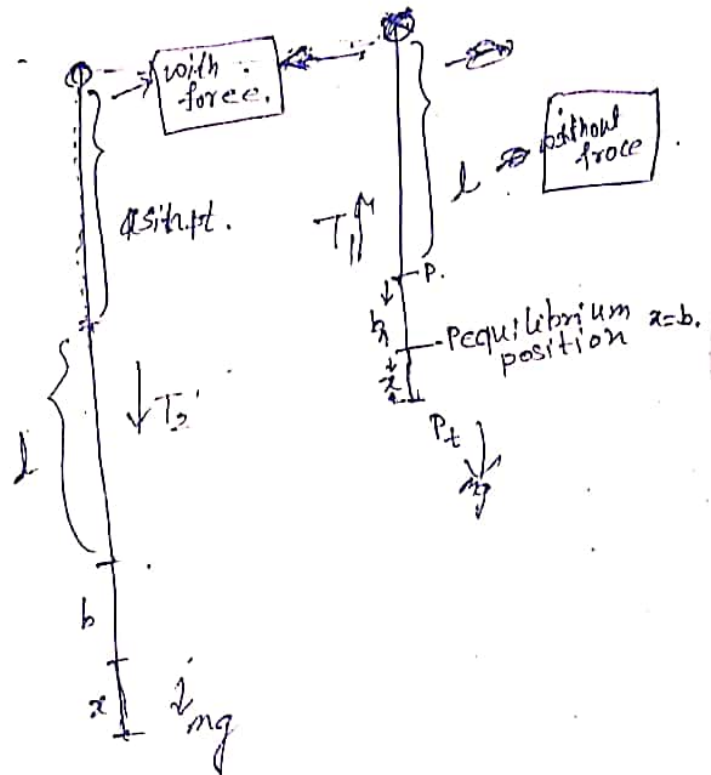 with
force.
l
without
froce
a sin pt.
T₁
P.
b
equilibrium x=b.
position
x
T₂'
l
P_t
mg
b
x
mg